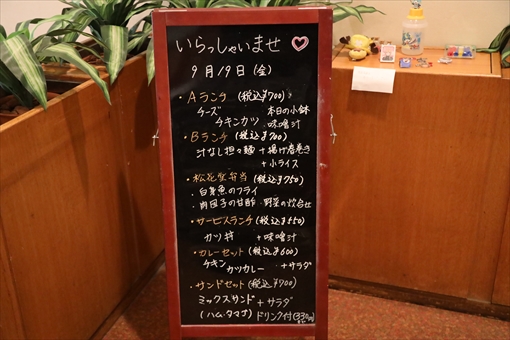 いらっしゃいませ♡
9月19日(金)
・Aランチ (税込¥700)
チーズ 本日の小鉢
チキンカツ 味噌汁
・Bランチ(税込¥700)
汁なし担々麺 + 揚げ春巻き
+小ライス
・松花堂弁当 (税込¥750)
・白身魚のフライ
・肉団子の甘酢・野菜の炊合せ
・サービスランチ(税込¥550)
カツ丼 + 味噌汁
・カレーセット(税込¥600)
チキン
カツカレー +サラダ
・サンドセット(税込¥700)
ミックスサンド +サラダ
(ハム・タマゴ) ドリンク付